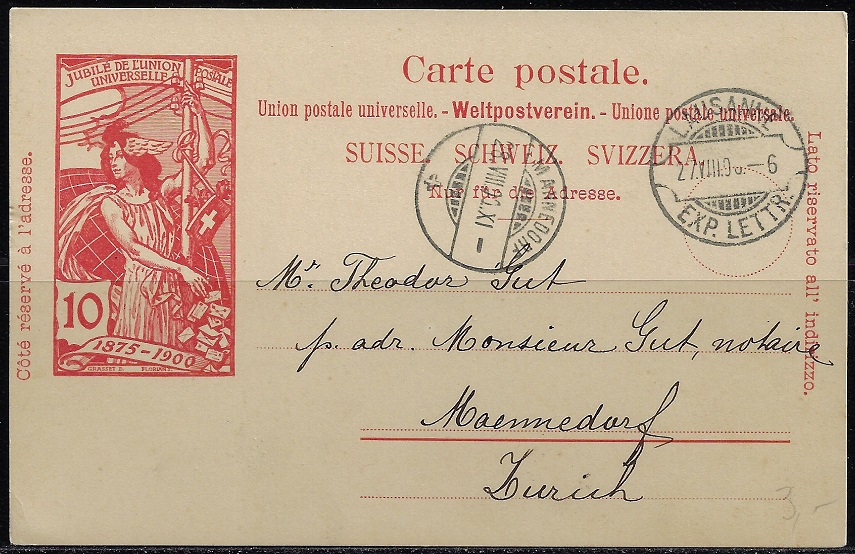 JUBILÉ DE L'UNION
UNIVERSELLE POSTALE
10
1875-1900
GRASSET E. FLORIAN
Côté réservé à l'adresse.
Carte postale.
Union postale universelle. - Weltpostverein. - Unione postale universale.
SUISSE. SCHWEIZ. SVIZZERA.
Nur für die Adresse.
Lato riservato all' indirizzo.
MÆNNEDORF
LAUSANNE
EXP. LETTR.
Mr. Theodor Gut
p. adr. Monsieur Gut, notaire
Maennedorf
Zurich
3,-